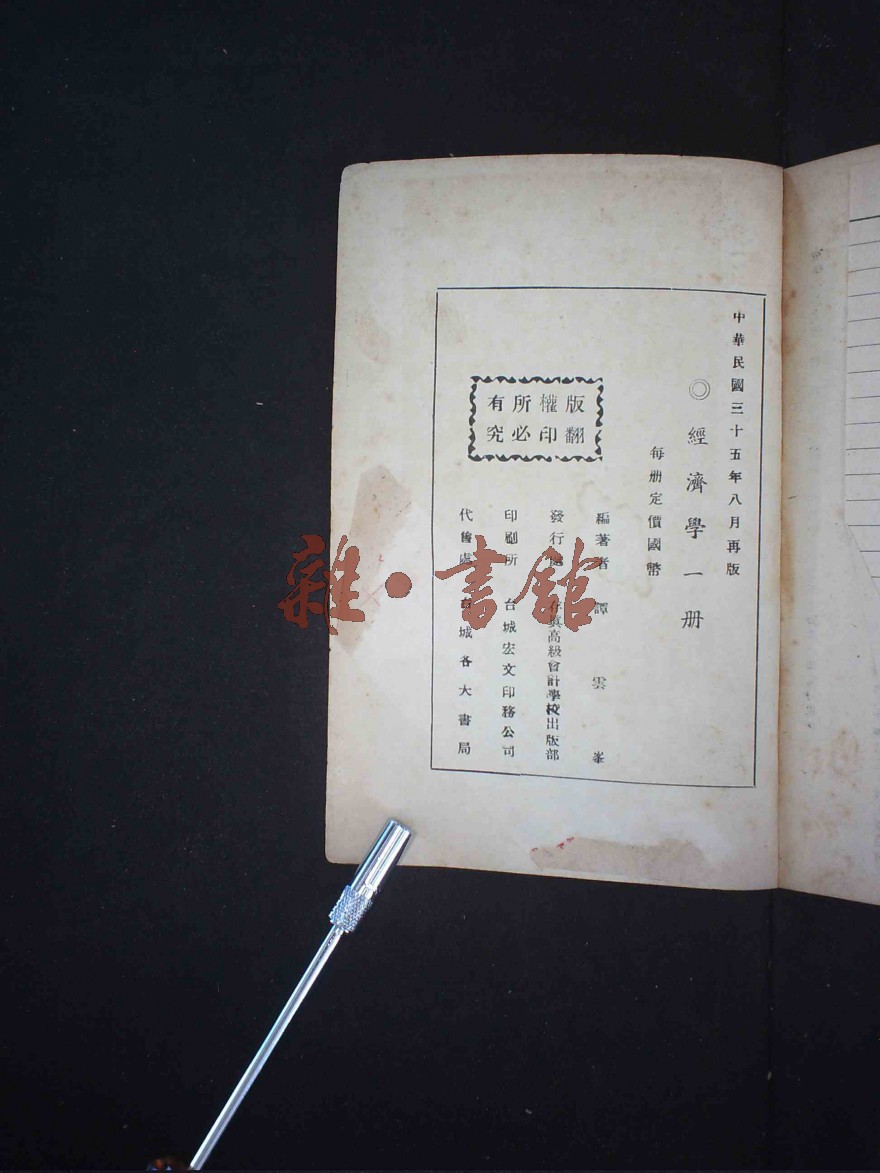 中華民國三十五年八月再版
◎經濟學一册
每册定價國幣
版權所有
翻印必究
編著者 譚雲峯
發行處 存真高級會計學校出版部
印刷所 台城宏文印務公司
代售處 台城各大書局
雜·書館